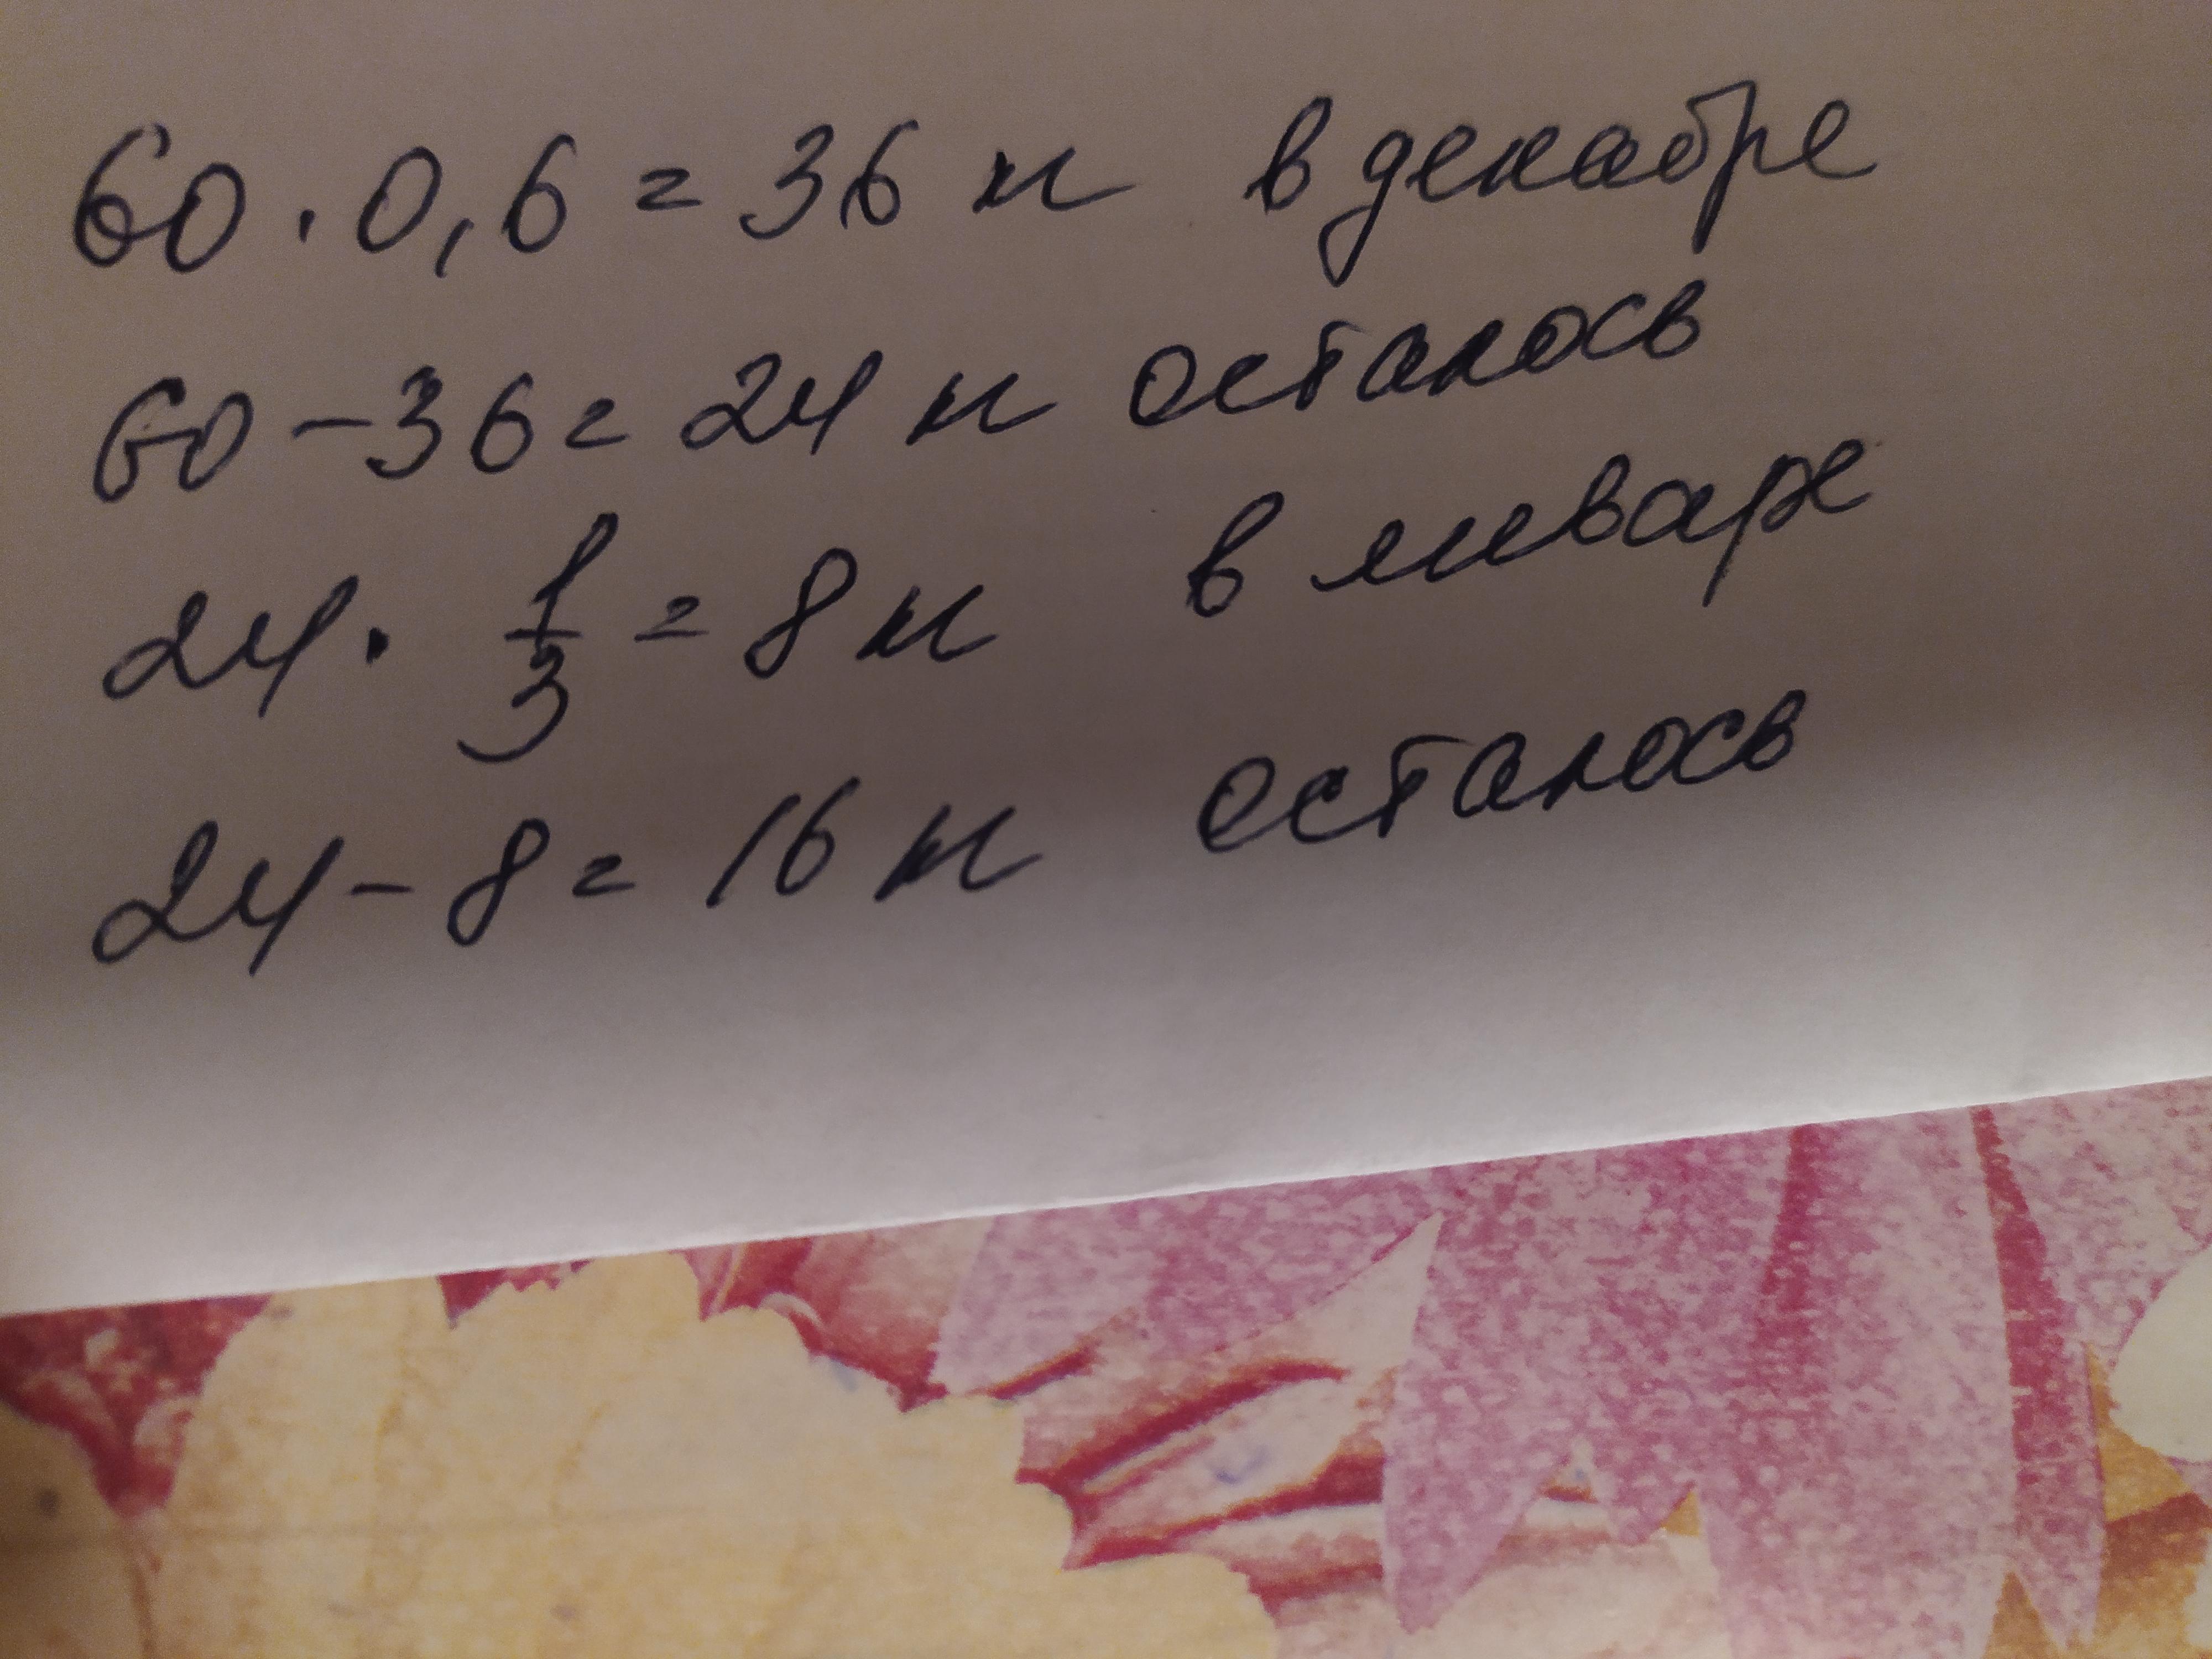 60 · 0,6 = 36 к в декабре
60 - 36 = 24 к осталось
24 · 1/3 = 8 к в январе
24 - 8 = 16 к осталось